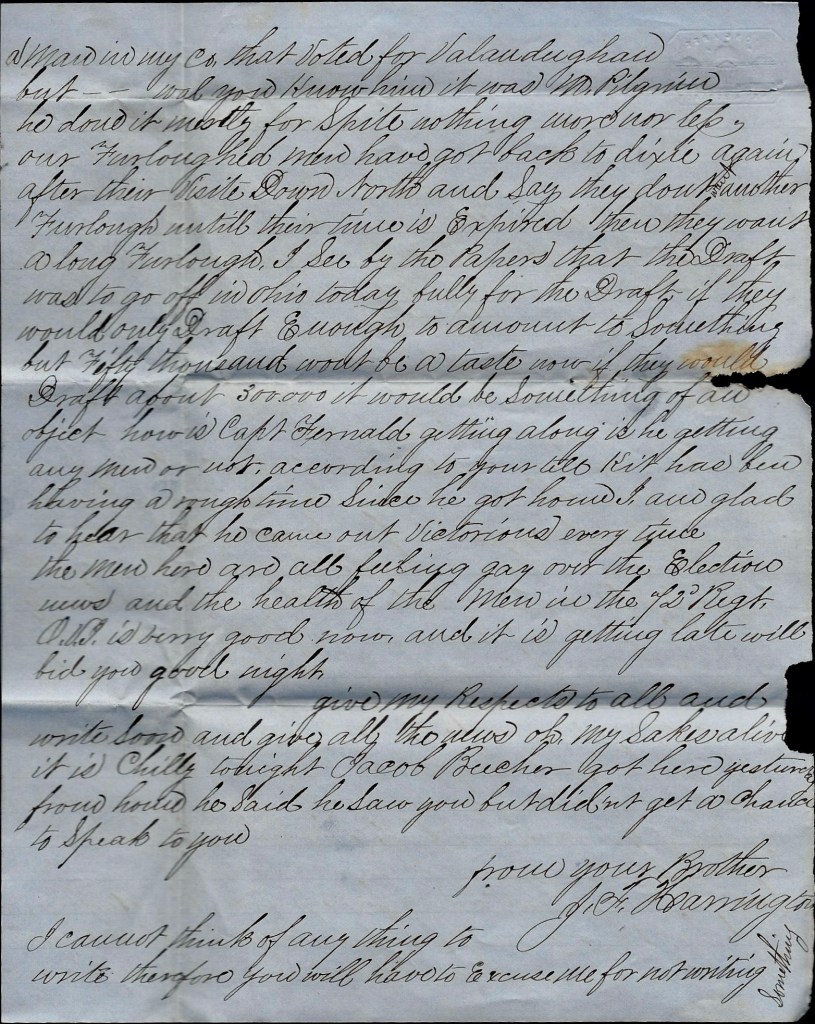 a man in my co, that Voted for Valandughan
but -- wal you Know him it was Pilgrim
he done it mostly for Spite nothing more nor less,
our Furloughed men have got back to dixie again,
after their Visite Down North and Say they dont want another
Furlough untill their time is Expired then they want
a long Furlough, I See by the Papers that the Draft
was to go off in ohio today bully for the Draft if they
would only Draft Enough to amount to Something
but Fifty thousand wont be a taste now if they would
Draft about 300.000 it would be Something of an
object how is Capt Fernald getting along is he getting
any men or not, according to your tell Kit has ben
having a rough time Since he got home I am glad
to hear that he came out Victorious every time
the men here are all feeling gay over the Election
news and the health of the Men in the 72d Regt,
O.V.I. is verry good now, and it is getting late will
bid you good night,
give my Respects to all and
write Soon and give all the news oh, my Sakes alive
it is Chilly tonight Jacob Beecher got here yesturday
from home he Said he Saw you but didnt get a chance
to Speak to you
from your Brother
J. F. Harrington
I cannot think of any thing to
write therefore you will have to Excuse me for not writing
Something